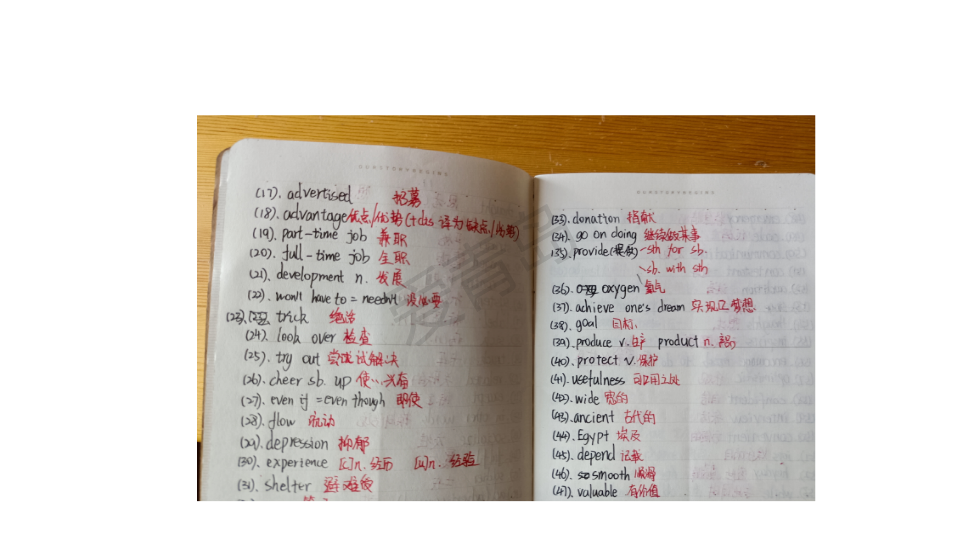 (17). advertised 招募
(18). advantage 优点/优势(+dis 译为缺点/劣势)
(19). part-time job 兼职
(20). full-time job 全职
(21). development n. 发展
(22). won't have to = needn't 没必要
(23). trick 绝活
(24). look over 检查
(25). try out 尝试 试解决
(26). cheer sb. up 使…兴奋
(27). even if = even though 即使
(28). flow 流动
(29). depression 抑郁
(30). experience [c]n. 经历 [u]n. 经验
(31). shelter 避难
(33). donation 捐献
(34). go on doing 继续做某事
(35). provide(提供) sth for sb.
sb. with sth
(36). oxygen 氧气
(37). achieve one's dream 实现梦想
(38). goal 目标
(39). produce v. 生产 product n.
(40). protect v. 保护
(41). usefulness 可用之处
(42). wide 宽的
(43). ancient 古代的
(44). Egypt 埃及
(45). depend
(46). smooth
(47). valuable 有价值